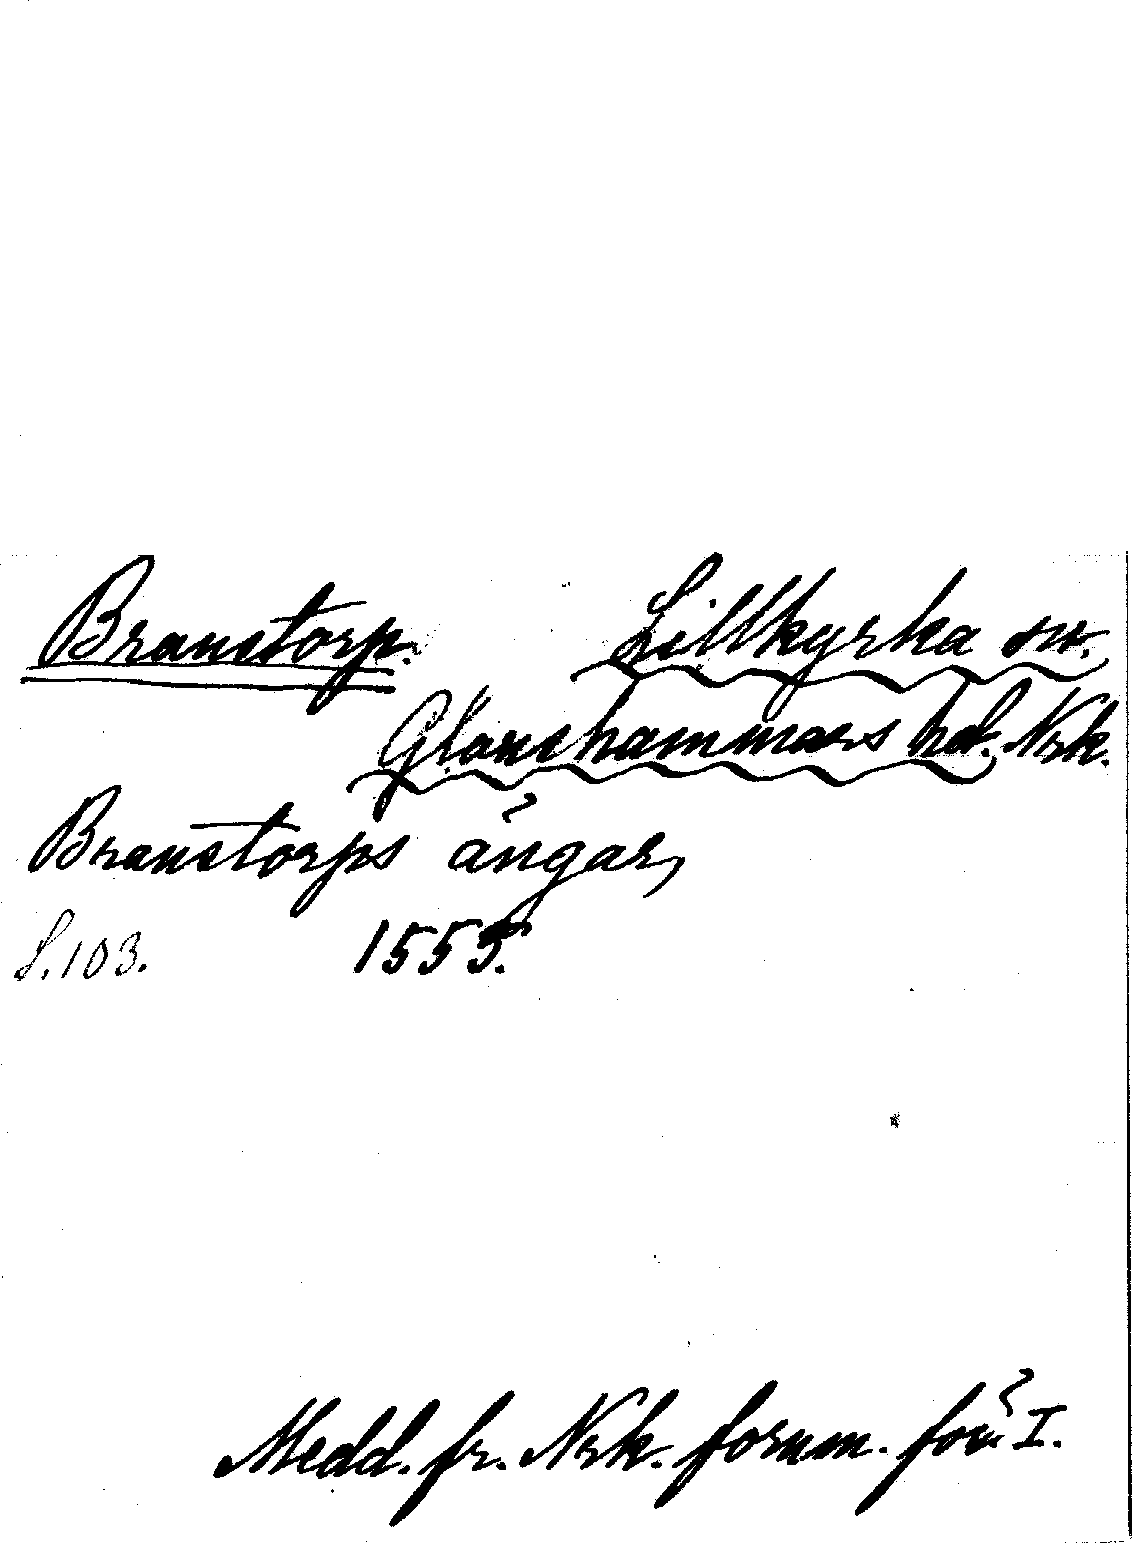 Branstorp. Lillkyrka sn.
Glanshammars hd. Nrk.
Branstorps ängar,
S. 103. 1555.
Medd. fr. Nrk. fornm. för. I.